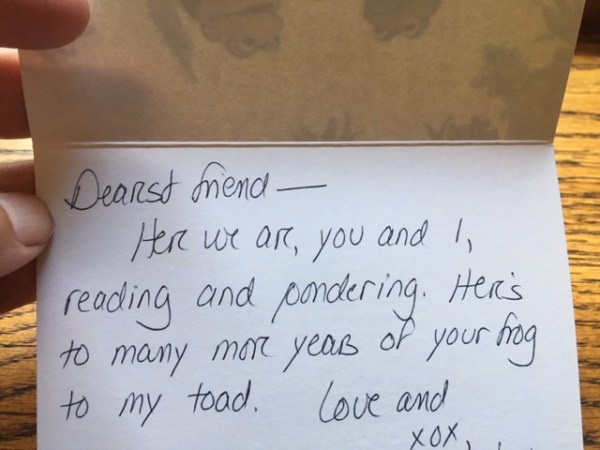 Dearest friend —
Here we are, you and I,
reading and pondering. Here's
to many more years of your frog
to my toad. Love and
xox,